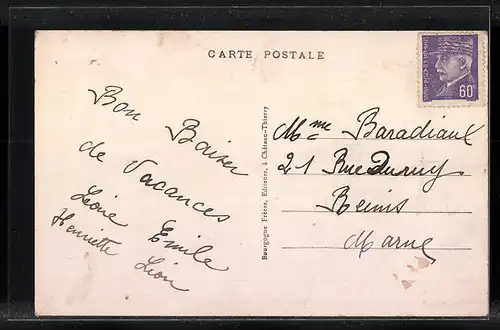 CARTE POSTALE
Bon Baiser
de Vacances
Léone Emile
Henriette Lion
Bourgogne Frères, Editeurs, à Château-Thierry
60c
Mme Baradiaux
21 Rue Duruy
Reims
Marne